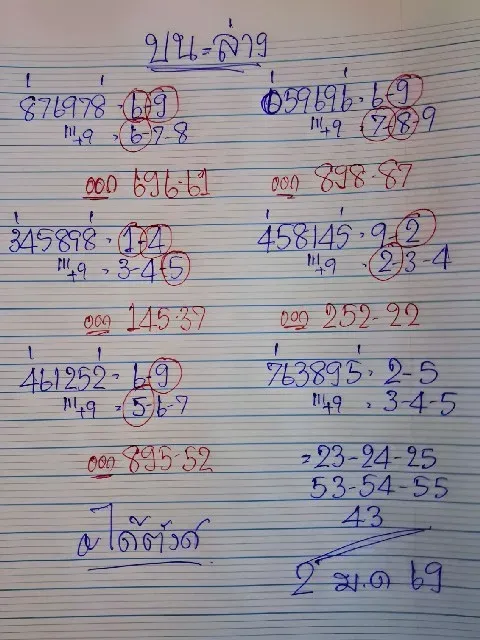 บน=ล่าง
876978 = 6-9
+9 = 6-7-8
ออก 696-61
059696 = 6-9
+9 = 7-8-9
ออก 898-87
345898 = 1-4
+9 = 3-4-5
ออก 145-37
458145 = 9-2
+9 = 2-3-4
ออก 252-22
461252 = 6-9
+9 = 5-6-7
ออก 895-52
763895 = 2-5
+9 = 3-4-5
=23-24-25
53-54-55
43
2 ม.ค 69